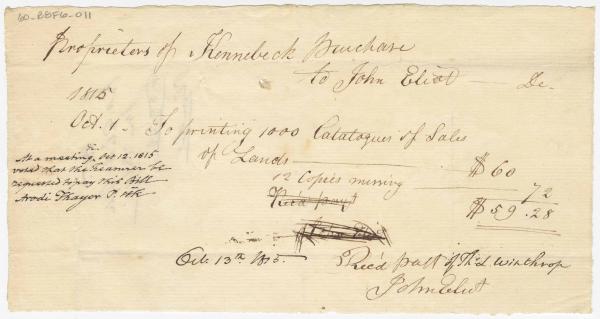 60-BBF6-011
Proprietors of Kennebeck Purchase
to John Eliot — Dr.
1815
Oct. 1 - To printing 1000 Catalogues of Sales
of Lands — $60
12 Copies missing — 72
$59.28
Rec'd pay't
John Eliot
&c.
At a meeting, Oct 12. 1815
voted that the Treasurer be
requested to pay this Bill
Arodi Thayer P. Clk
Oct. 13th 1815.
Rec'd paÿt of Th's L Winthrop
John Eliot